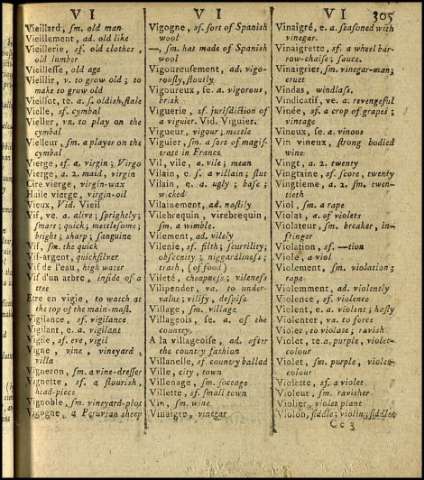 V I
Vieillard, sm. old man
Vieillement, ad. old like
Vieillerie, sf. old clothes,
old lumber
Vieillesse, old age
Vieillir, v. to grow old; to
make to grow old
Vieillot, te. a. s. oldish, stale
Vielle, sf. cymbal
Vieller, vn. to play on the
cymbal
Vielleur, sm. a player on the
cymbal
Vierge, sf. virgin; Virgo
Vierge, a. 2. maid, virgin
Cire vierge, virgin-wax
Huile vierge, virgin-oil
Vieux, Vid. Vieil
Vif, ve. a. alive; sprightly;
smart; quick; mettlesome;
bright; sharp; sanguine
Vif, sm. the quick
Vif-argent, quicksilver
Vif de l'eau, high water
Vif d'un arbre, inside of a
tree
Etre en vigie, to watch at
the top of the main-mast.
Vigilance, sf. vigilance
Vigilant, e. a. vigilant
Vigile, sf. eve, vigil
Vigne, vine, vineyard,
villa
Vigneron, sm. a vine-dresser
Vignette, sf. a flourish,
head-piece
Vignoble, sm. vineyard-plot
Vigogne, a Peruvian sheep
V I
Vigogne, sf. sort of Spanish
wool
—, sm. hat made of Spanish
wool
Vigoureusement, ad. vigo-
rously, stoutly
Vigoureux, se. a. vigorous,
brisk
Viguerie, sf. jurisdiction of
a viguier. Vid. Viguier.
Vigueur, vigour; mettle
Viguier, sm. a sort of magis-
trate in France
Vil, vile, a. vile; mean
Vilain, e. s. a villain; slut
Vilain, e. a. ugly; base;
wicked
Vilainement, ad. nastily
Vilebrequin, virebrequin,
sm. a wimble.
Vilement, ad. vilely
Vilenie, sf. filth; scurrility;
obscenity; niggardliness;
trash, (of food)
Vileté, cheapness; vileness
Vilipender, va. to under-
value; vilify, despise
Village, sm. village.
Villageois, se. a. of the
country.
A la villageoise, ad. after
the country fashion
Villanelle, sf. country ballad
Ville, city, town
Villenage, sm. soccage
Villette, sf. small town
Vin, sm. wine
Vinaigre, vinegar
V I 305
Vinaigré, e. a. seasoned with
vinegar.
Vinaigrette, sf. a wheel bar-
row-chaise; sauce.
Vinaigrier, sm. vinegar-man;
cruet
Vindas, windlass.
Vindicatif, ve. a. revengeful
Vinée, sf. a crop of grapes;
vintage
Vineux, se. a. vinous
Vin vineux, strong bodied
wine
Vingt, a. 2. twenty
Vingtaine, sf. score, twenty
Vingtieme, a. 2. sm. twen-
tieth
Viol, sm. a rape
Violat, a. of violets
Violateur, sm. breaker, in-
fringer
Violation, sf. —tion
Viole, a viol
Violement, sm. violation;
rape
Violemment, ad. violently
Violence, sf. violence
Violent, e. a. violent; hasty
Violenter, va. to force
Violer, to violate; ravish
Violet, te. a. purple, violet-
colour
Violet, sm. purple, violet-
colour
Violette, sf. a violet
Violeur, sm. ravisher
Violier, violet plant
Violon, fiddle; violin; fiddler
C c 3